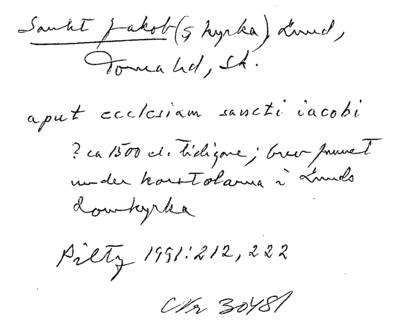 Sankt Jakob(s kyrka), Lund,
Torna hd, Sk.
aput ecclesiam sancti iacobi
? ca 1500 el. tidigare; brev funnet
under korstolarna i Lunds
domkyrka
Piltz 1991:212, 222
30481